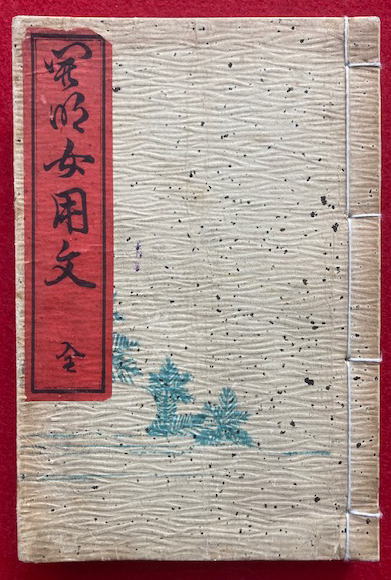 開明女用文
全